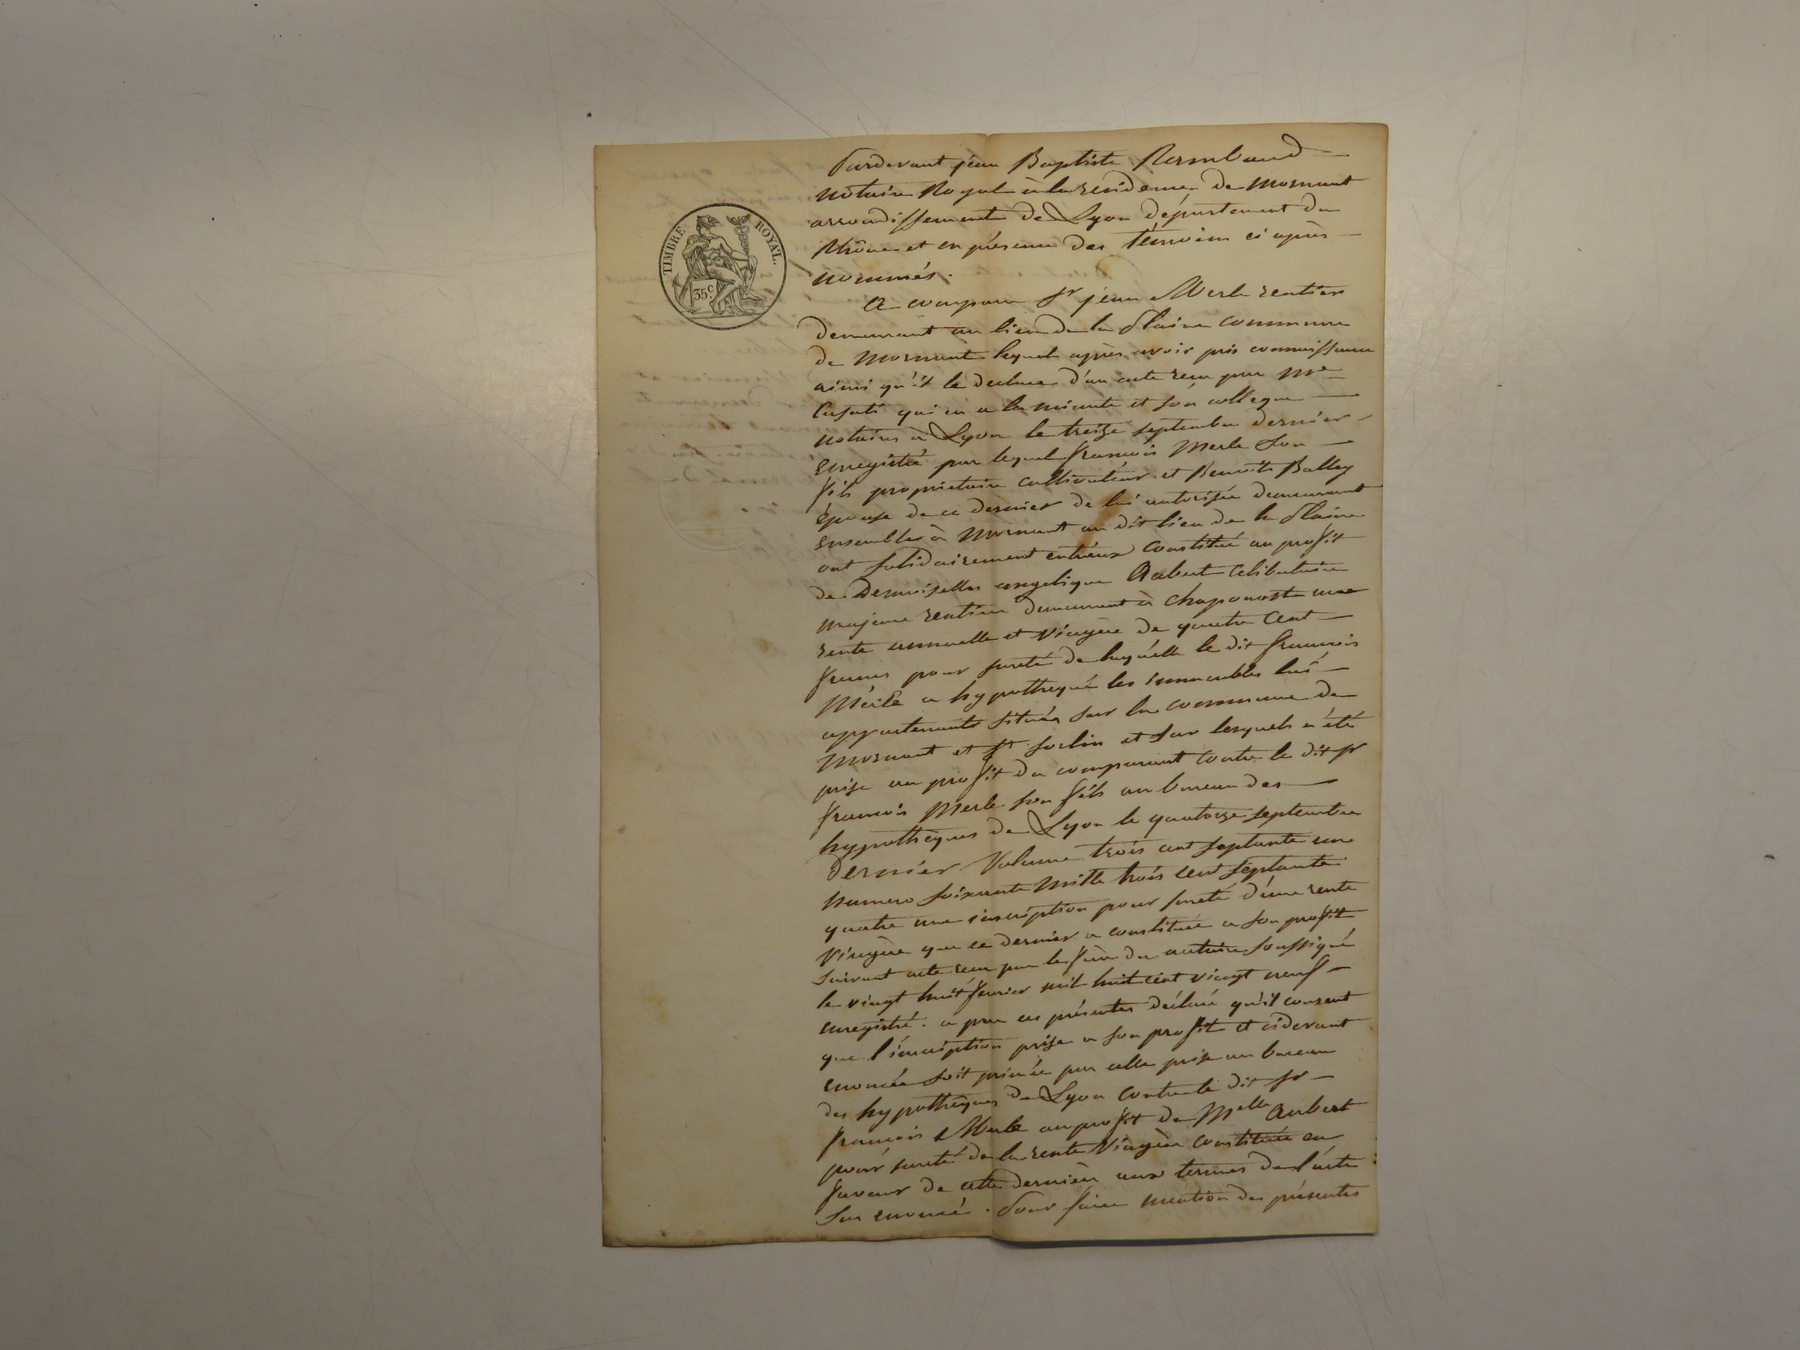 TIMBRE ROYAL.
35c.
Pardevant jean Baptiste Rambaud
notaire Royal à la residence de Mornant
arrondissement de Lyon département du
Rhône et en présence des témoins ci après
nommés.
A comparu Sr jean Merle rentier
demeurant au lieu de la Plaine commune
de Mornant lequel après avoir pris connaissance
ainsi qu'il le declare d'un acte reçu par Me
Casati qui en a la minute et son collegue
notaires à Lyon le treize septembre dernier
enregistré par lequel francois Merle son
fils proprietaire cultivateur et Benoite Balley
épouse de ce dernier de lui autorisée demeurant
ensembles à Mornant au dit lieu de la Plaine
ont solidairement entreux constitué au profit
de Demoiselles angelique Aubert celibataire
majeure rentiere demeurant à chaponost une
rente annuelle et viagère de quatre cent
francs pour sureté de laquelle le dit francois
Merle a hypothequé les immeubles lui
appartenants situés sur la commune de
Mornant et St Sorlin et sur lesquels a été
prise au profit du comparant contre le dit sr
francois Merle son fils au bureau des
hypothèques de Lyon le quatorze septembre
dernier Volume trois cent septante un
numero soixante mille trois cent septante
quatre une inscription pour sureté d'une rente
viagère que ce dernier a constituée a son profit
suivant acte reçu par le père du notaire soussigné
le vingt huit fevrier mil huit cent vingt neuf
enregistré. a par ces présentes déclaré qu'il consent
que l'inscription prise a son profit et cidevant
enoncée soit primée par celle prise au bureau
des hypothèques de Lyon contre le dit sr
francois Merle au profit de Melle Aubert
pour sureté de la rente Viagère constituée en
faveur de cette dernière aux termes de l'acte
sus enoncé. Pour faire mention des présentes